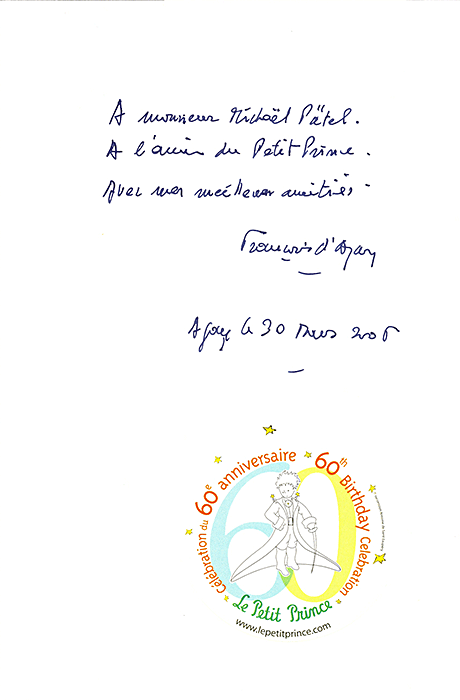 A monsieur Michaël Pätel.
A l'ami du Petit Prince.
Avec mes meilleures amitiés.
François d'Agay
Agay le 30 Mars 2006
Célébration du 60e anniversaire
60th Birthday Celebration
60
Le Petit Prince
www.lepetitprince.com